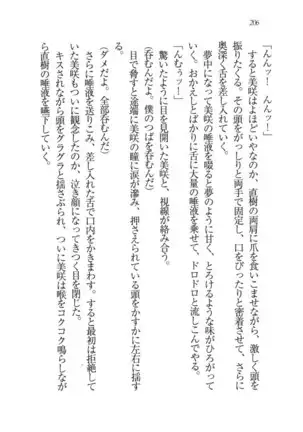 206
「んんッ！　んんッ！」
　すると美咲はよほどいやなのか、直樹の両肩に爪を食いこませながら、激しく頭を
振りたくる。その頭をがっしりと両手で固定し、口をぴったりと密着させて、さらに
奥深く舌を差し入れていく。
　夢中になって美咲の唾液を啜ると夢のように甘く、とろけるような味がひろがって
いく。おかえしとばかりに舌に大量の唾液を乗せて、ドロドロと流しこんでやる。
「んむぅッー！」
　驚いたように目を見開いた美咲と、視線が絡み合う。
（呑むんだよ。僕のつばを呑むんだ）
　目で脅かすと途端に美咲の瞳に涙が滲み、押さえられている頭をかすかに左右に揺す
（ダメだよ。全部呑むんだ）
　さらに唾液を送りこみ、差し入れた舌で口内をかきまわす。すると最初は拒絶して
いた美咲もついに観念したのか、泣き顔になってきつく目を閉じた。
　キスされながら頭をグラグラと揺さぶられ、ついに美咲は喉をコクコク鳴らしなが
ら直樹の唾液を嚥下していく。